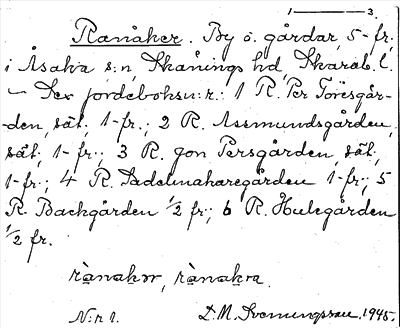 1 — 3.
Ranåker. By o. gårdar, 5-fr.
i Åsaka s:n, Skånings hd, Skarab. l.
– Sex jordeboksn:r: 1 R. Per Töresgår-
den, sät., 1-fr.; 2 R. Assmundsgården,
sät., 1-fr.; 3 R. Jon Persgården, sät.,
1-fr.; 4 R. Sadelmakaregården 1-fr.; 5
R. Backgården ½ fr.; 6 R. Hulegården
½ fr.
rànakər, rànakra.
N:r 1.
D. M. Svenungsson. 1945.